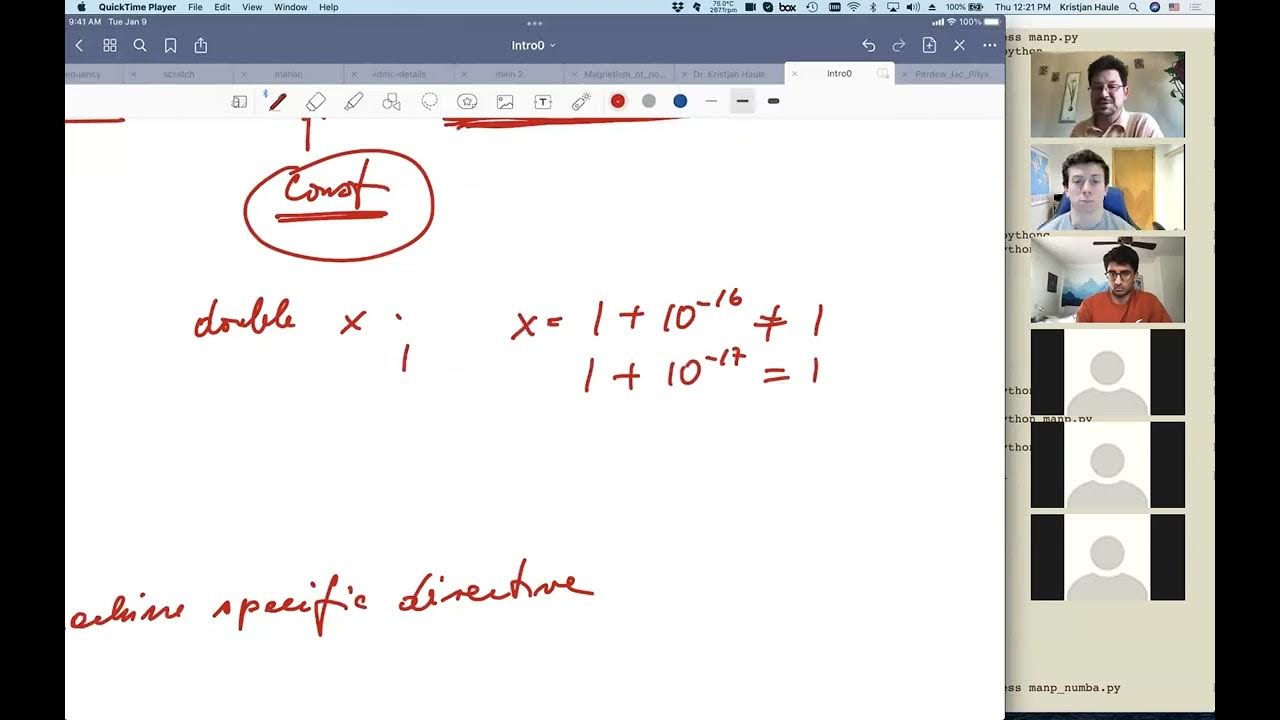 QuickTime Player File Edit View Window Help 75.0°C 2677rpm box 100% Thu 12:21 PM Kristjan Haule
9:41 AM Tue Jan 9 100%
Intro0
equency scratch manan vdmc-details main 2 Magnetism_of_no... Dr. Kristjan Haule Intro0
T
ess manp.py
python
Const
pythonc
python
double x . x = 1 + 10⁻¹⁶ ≠ 1
1 1 + 10⁻¹⁷ = 1
python
python manp.py
python
achine specific directive
ess manp_numba.py